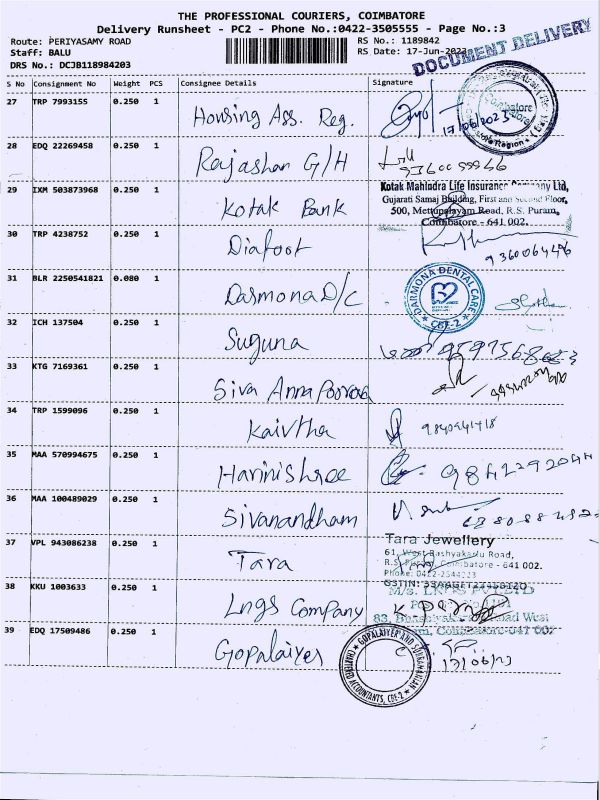 THE PROFESSIONAL COURIERS, COIMBATORE
Delivery Runsheet - PC2 - Phone No.:0422-3505555 - Page No.:3
Route: PERIYASAMY ROAD
RS No.: 1189842
Staff: BALU
RS Date: 17-Jun-2023
DRS No.: DCJB118984203
DOCUMENT DELIVERY
S No Consignment No Weight PCS Consignee Details Signature
27 TRP 7993155 0.250 1 Housing Ass. Reg.
17/06/2023
Coimbatore
28 EDQ 22269458 0.250 1 Rajashan G/H
29 IXM 503873968 0.250 1 Kotak Bank
Kotak Mahindra Life Insurance Company Ltd,
Gujarati Samaj Building, First and Second Floor,
500, Mettupalayam Road, R.S. Puram,
Coimbatore - 641 002.
30 TRP 4238752 0.250 1 Diafoot
9360064496
31 BLR 2250541821 0.080 1 Darmona D/C
DARMONA DENTAL CARE
CBE-2
32 ICH 137504 0.250 1 Suguna
33 KTG 7169361 0.250 1 Siva Annapoorna
34 TRP 1599096 0.250 1 Kaivtha
9840441718
35 MAA 570994675 0.250 1 Harinishree
9842292044
36 MAA 100489029 0.250 1 Sivanandham
37 VPL 943086238 0.250 1 Tara
Tara Jewellery
61, West Bashyakarlu Road,
R.S. Puram, Coimbatore - 641 002.
Phone: 0422-2544023
38 KKU 1003633 0.250 1 Lngs Company
M/S. LNGS PVT LTD
39 EDQ 17509486 0.250 1 Gopalaiyer
GOPALAIYER AND SUBRAMANIAN
CHARTERED ACCOUNTANTS, CBE-2